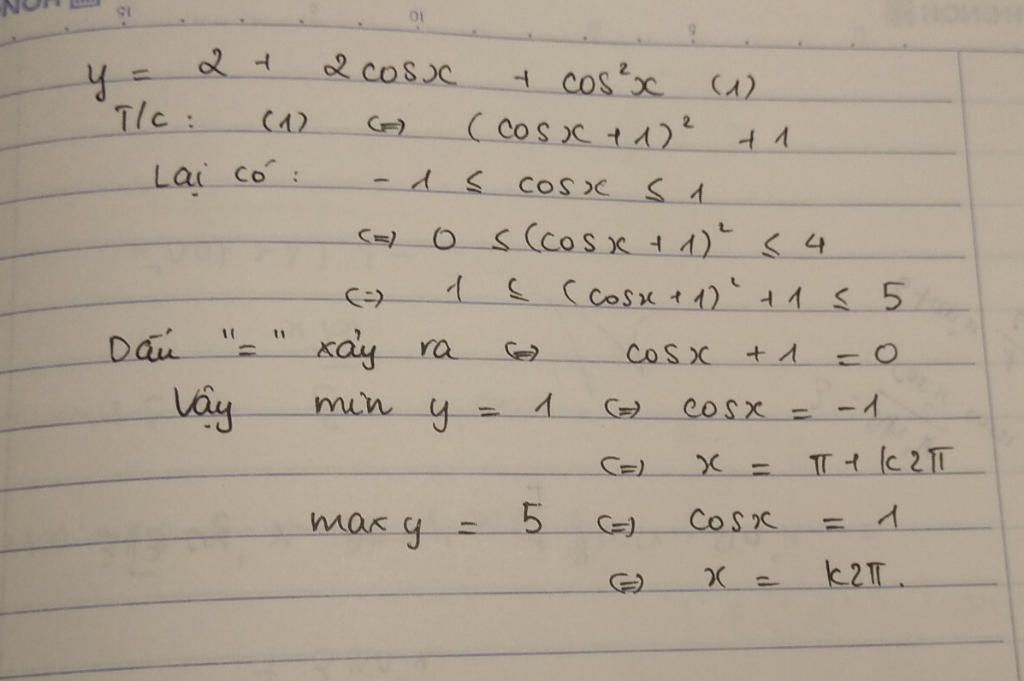 y = 2 + 2cosx + cos²x (1)
T/c : (1) <=> (cosx + 1)² + 1
Lại có : - 1 ≤ cosx ≤ 1
<=> 0 ≤ (cosx + 1)² ≤ 4
<=> 1 ≤ (cosx + 1)² + 1 ≤ 5
Dấu "=" xảy ra <=> cosx + 1 = 0
Vậy min y = 1 <=> cosx = -1
<=> x = π + k2π
max y = 5 <=> cosx = 1
<=> x = k2π.